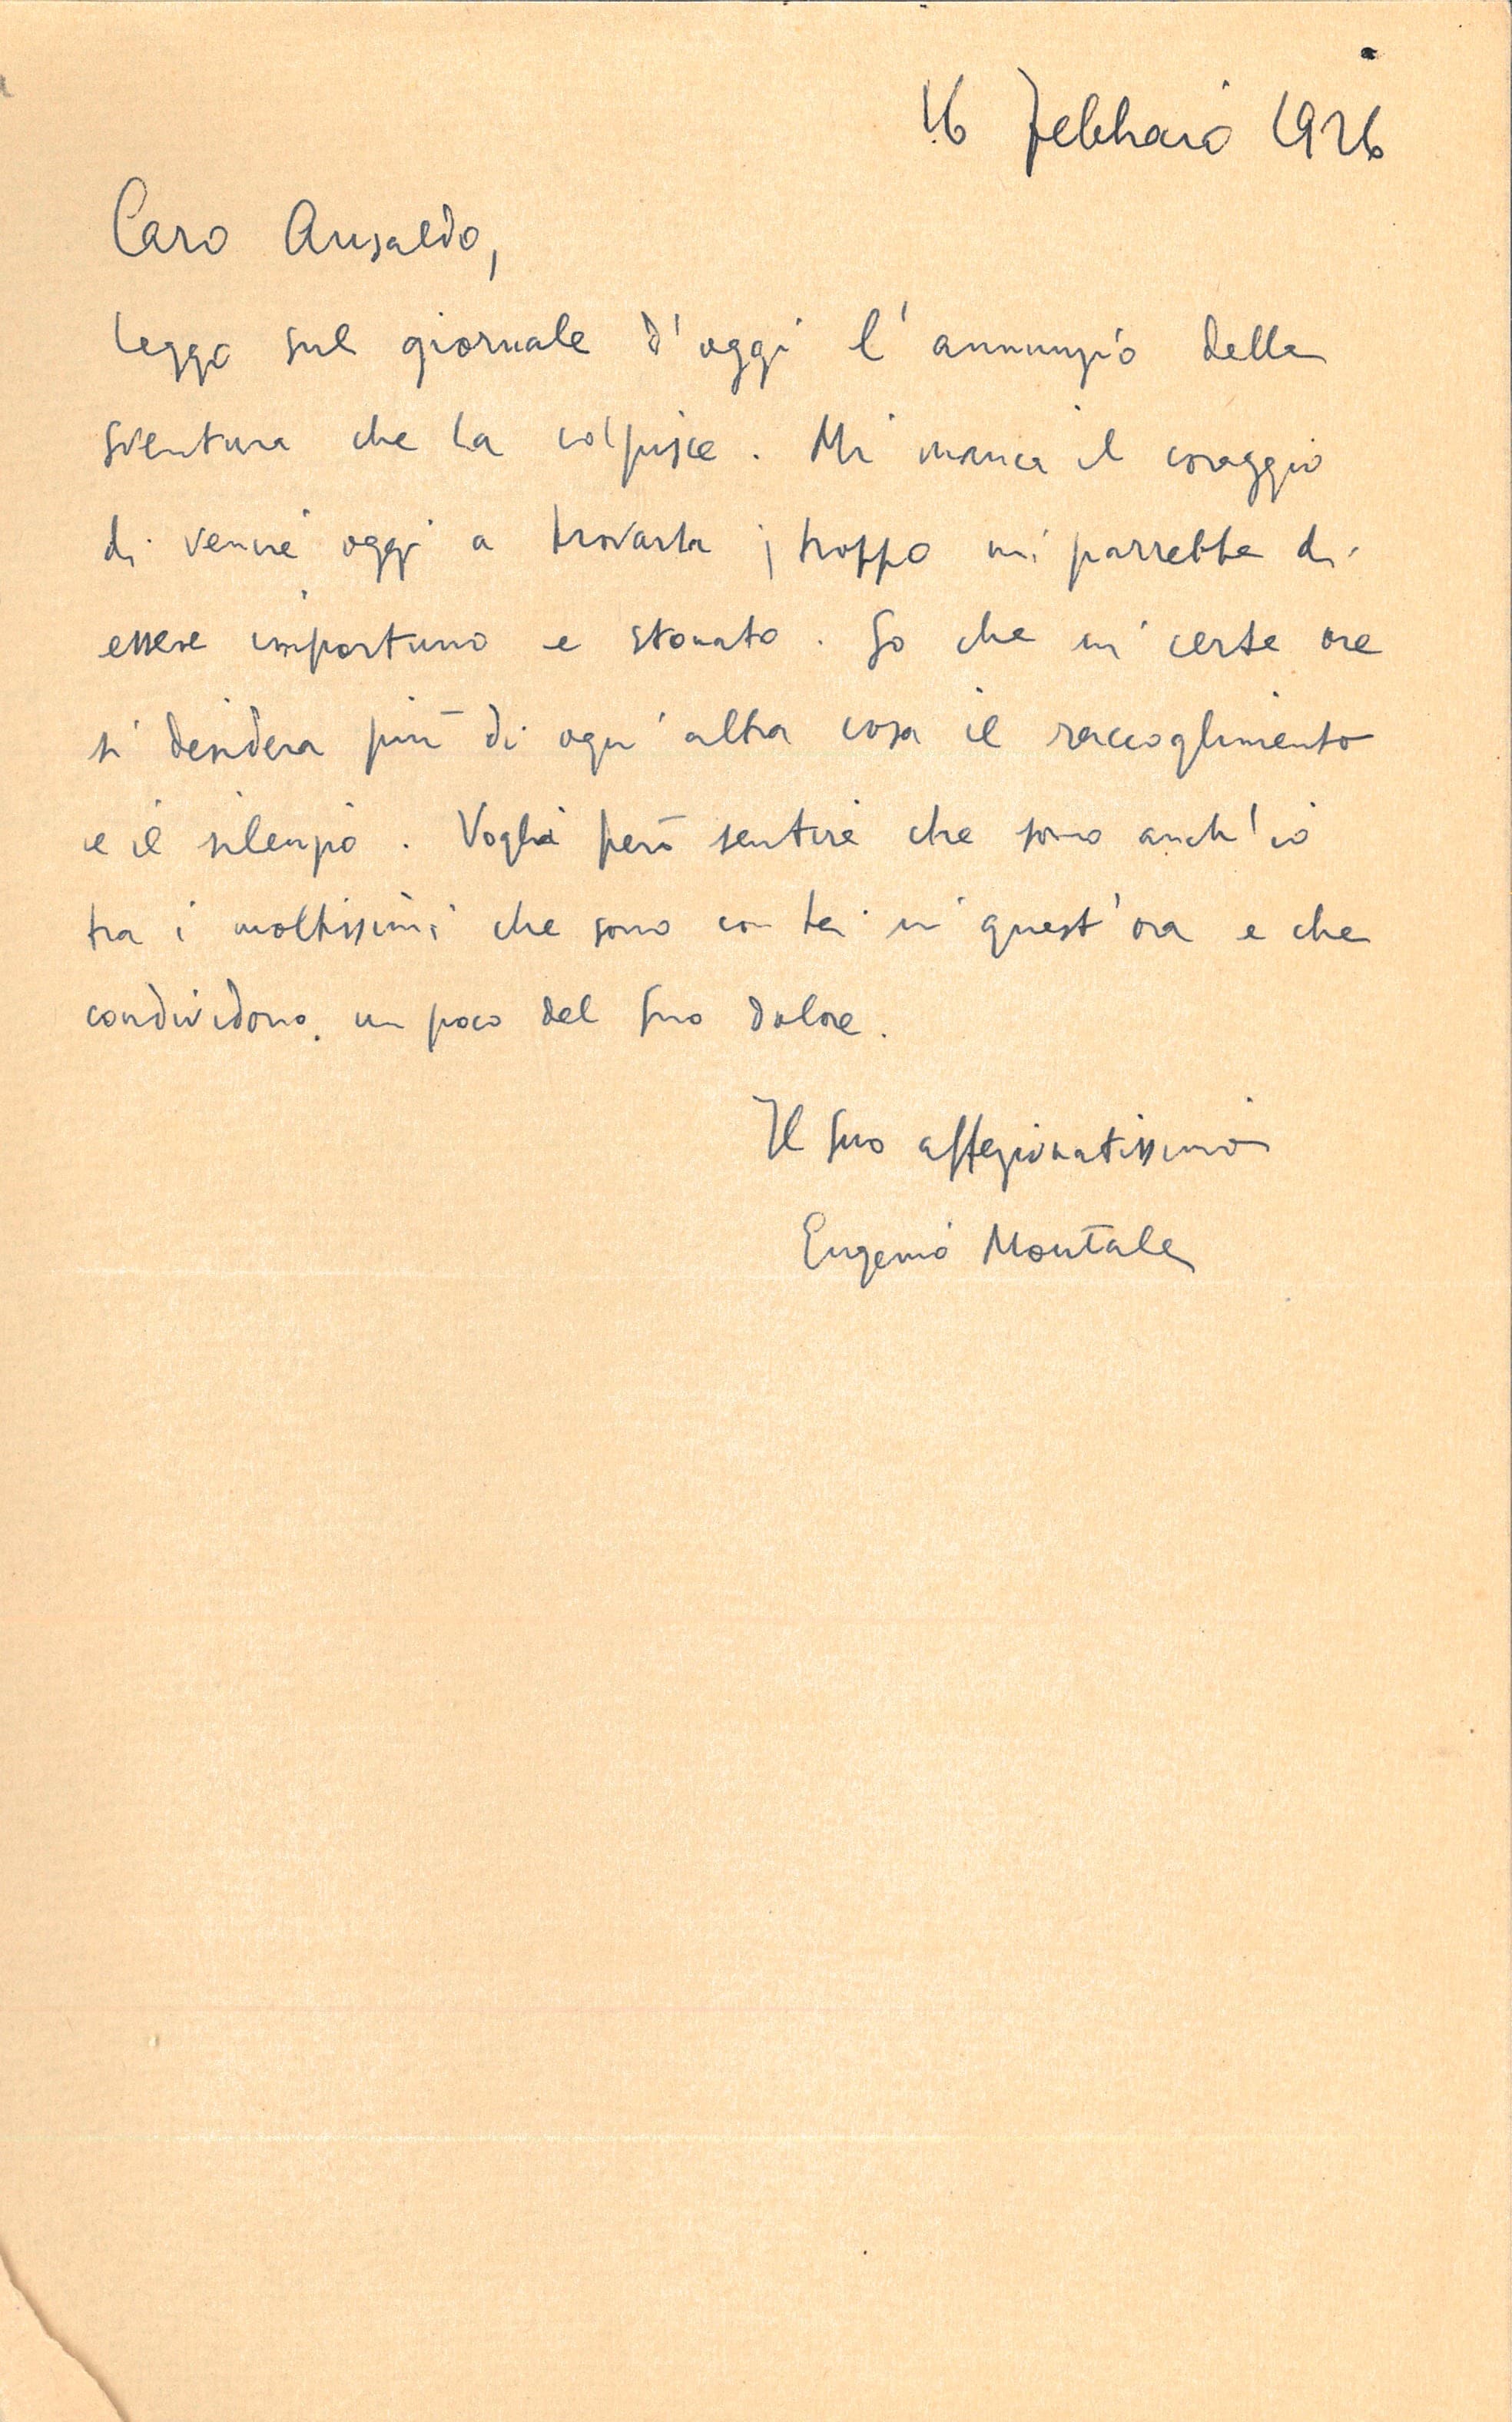 16 febbraio 1926
Caro Ansaldo,
leggo sul giornale d'oggi l'annunzio della
sventura che La colpisce. Mi manca il coraggio
di venire oggi a trovarla; troppo mi parrebbe di
essere importuno e stonato. So che in certe ore
si desidera più di ogni altra cosa il raccoglimento
e il silenzio. Voglia però sentire che sono anch'io
tra i moltissimi che sono con Lei in quest'ora e che
condividono un poco del Suo dolore.
Il Suo affezionatissimo
Eugenio Montale